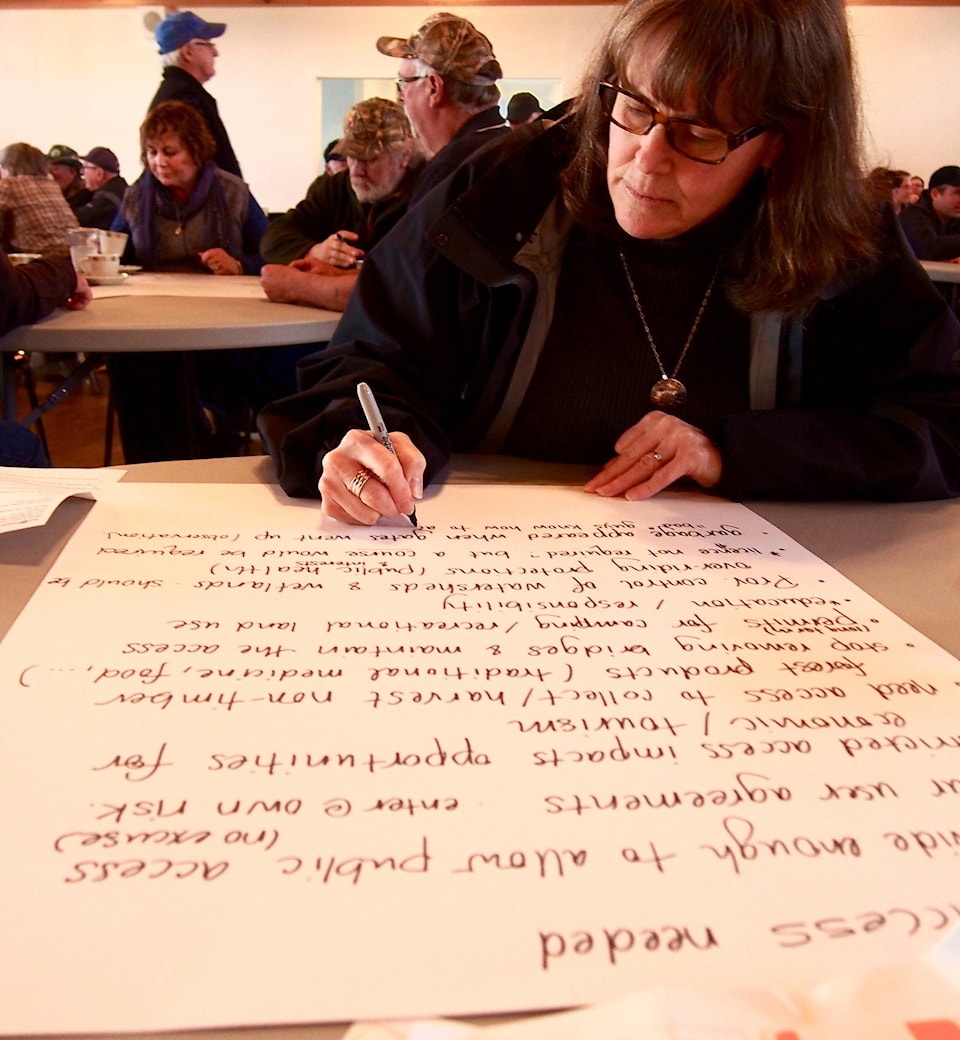 access needed
wide enough to allow public access
(no excuse)
user agreements - enter @ own risk.
access impacts opportunities for
economic / tourism
need access to collect/harvest non-timber
forest products (traditional medicine, food, ....)
• stop removing bridges & maintain the access
(long term)
• permits for camping/recreational land use
•*education / responsibility
• Prov. control of watersheds & wetlands - should be
over-riding protections (public health)
& interests
•*licence not required; but a course would be required
• garbage appeared when gates went up (observation)
"bad" guys know how to